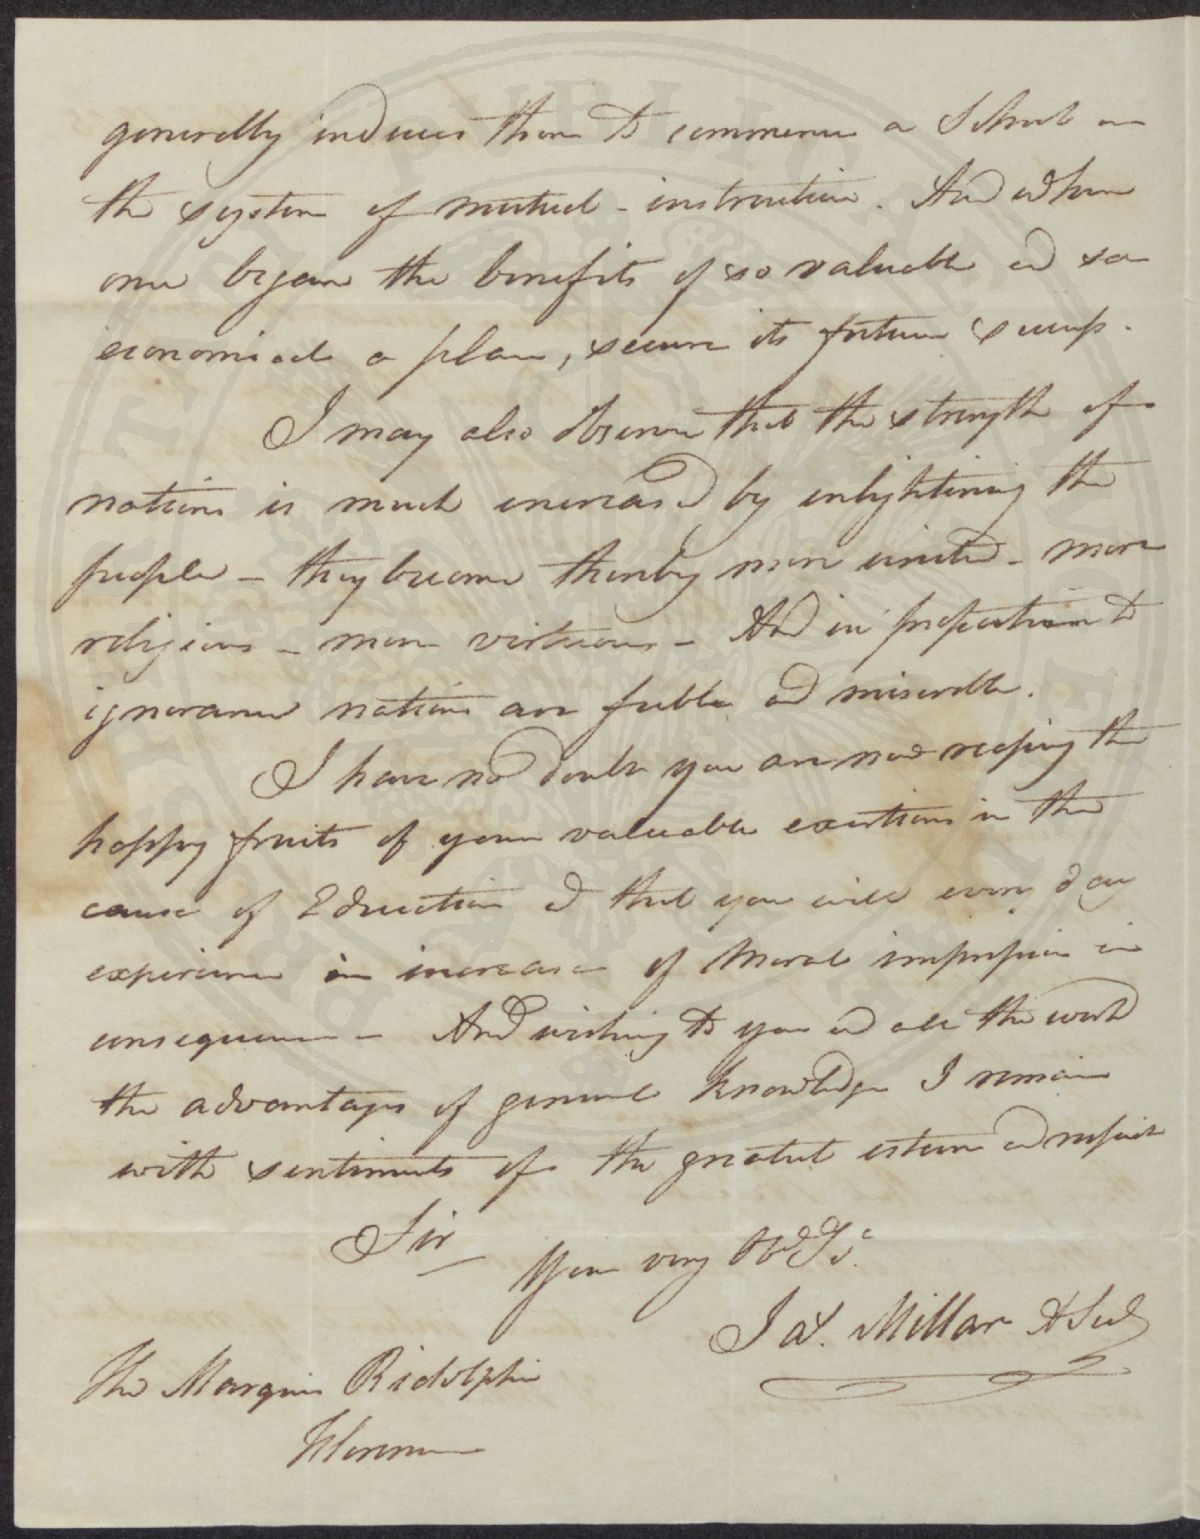 generally induces them to commence a School on
the system of mutual - instruction. And when
once begun the benefits of so valuable and so
economical a plan, secure its future success.
I may also observe that the strength of
nations is much increased by enlightening the
people - they become thereby more united - more
religious - more virtuous - And in proportion to
ignorance nations are feeble and miserable.
I have no doubt you are now reaping the
happy fruits of your valuable exertions in the
cause of Education & that you will every day
experience an increase of Moral in
consequence - And wishing to you and all the world
the advantages of general knowledge I remain
with sentiments of the greatest esteem and respect
Sir
Your very Obt. St.
Jas. Millar A Sec
The Marquis Ridolphi
Florence